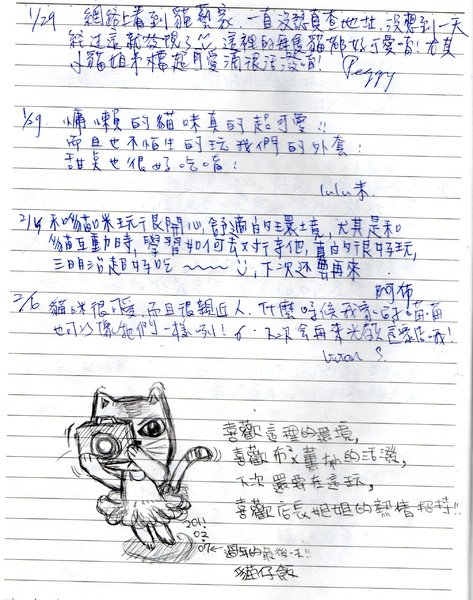 1/29 網路上看到貓藝家，一直沒認真查地址，沒想到一天
經過這就發現了 這裡的每隻貓都好可愛唷！尤其
小貓姐 檸檬超可愛滴很活潑唷！
Peggy
1/29. 慵懶的貓咪真的超可愛!!
而且也不怕生的玩我們的外套!
甜點也很好吃唷!
lulu
2/4 和貓咪玩很開心，舒適的環境，尤其是和
貓互動時，學習如何去對待他，真的很好玩，
三明治超好吃~~~~，下次還要再來
阿布
2/6 貓咪很可愛，而且很親近人，什麼時候我家的苗苗
也可以像牠們一樣咧！下次會再來光顧這家店哦！
喜歡這裡的環境，
喜歡布 的活潑，
下次還要在這玩，
喜歡店長姐姐的熱情招待!!
2011
02
07 ← 週年的最後一天!!
貓仔飯